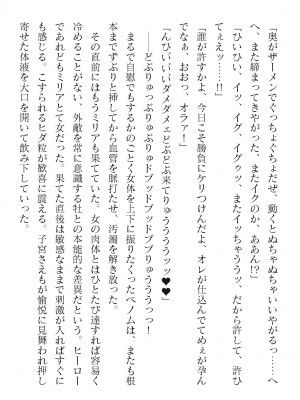 「奥がザーメンでぐっちょぐちょだぜ。動くとぬちゃぬちゃいいやがるっ……へ
へ、また締まってきやがった、またイクのか、ああん!?」
「ひいひい、イッ、イグ、イッグゥッ　またイッちゃううッ、だから許して、許ひ
てぇえッ……!!」
「誰が許すかよ、今日こそ勝負にケリつけんだよ、オレが仕込んでてめぇが孕ん
でなぁ、おおっ、オラァ!」
どぷりゅっぷりゅぷりゅドプッドプッブプりゅうううっっ!
「んひぃいいダメダメェどぷどぷ来てりゅうううううッ♥♥」
まるで自慰でもするかのごとく女体を上下に振りたくったベノムは、またも根
本までずぶりと挿入してから血管を脈打たせ、汚濁を解き放った。
その直前にはもうミリアも果てていた。女の肉体とはひとたび達すれば容易く
冷めることがない。外敵を常に意識する牡との本能的な差異だという。ヒーロー
であれどもミリアとて女だった。果てた直後は敏感なままで刺激が入ればすぐに
も感じる。こすられるヒダ粒が歓喜に震える。子宮さえもが愉悦に見舞われ押し
寄せた体液を大口を開いて飲み下していった。